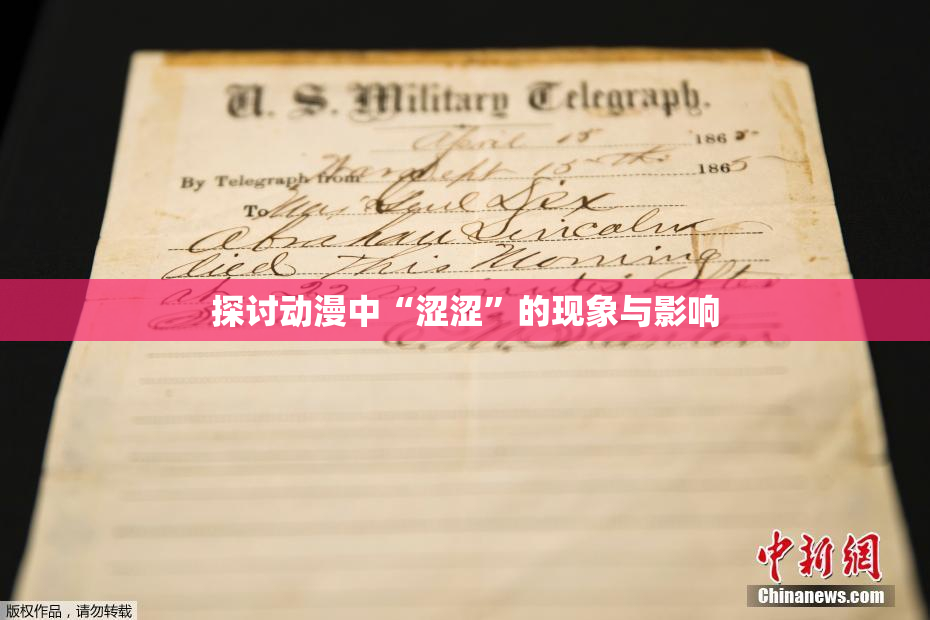 U. S. Military Telegraph.
April 15 1865
By Telegraph from War Dept 15th 1865
To Maj Genl Dix
Abraham Lincoln
died This Morning
at 22 minutes after
探讨动漫中“涩涩”的现象与影响
E. M. Stanton
中新网
Chinanews.com
版权作品，请勿转载